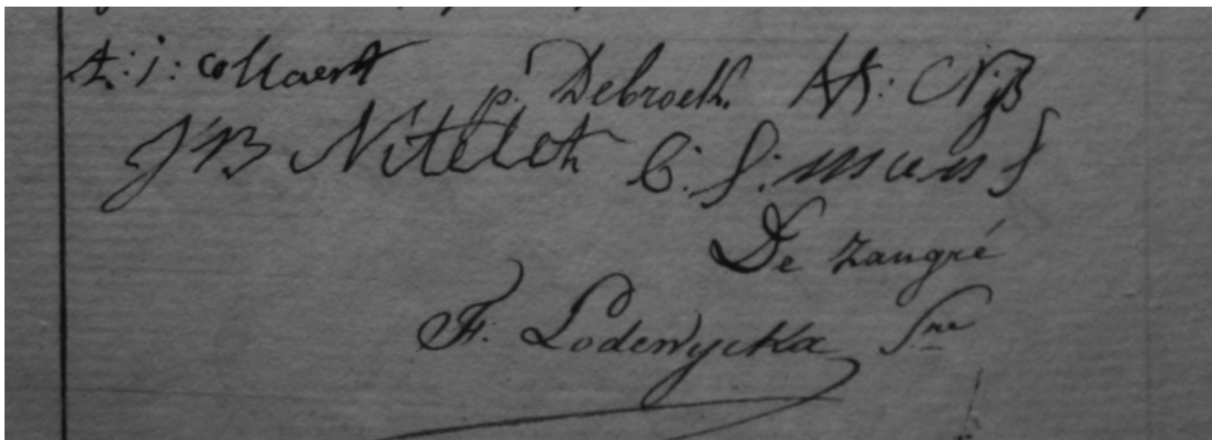 A: j: collaert p. Debroeck. H: Nijs
J B Nitelet C: S: mans
De Zangré
F. Lodewyckx Sre